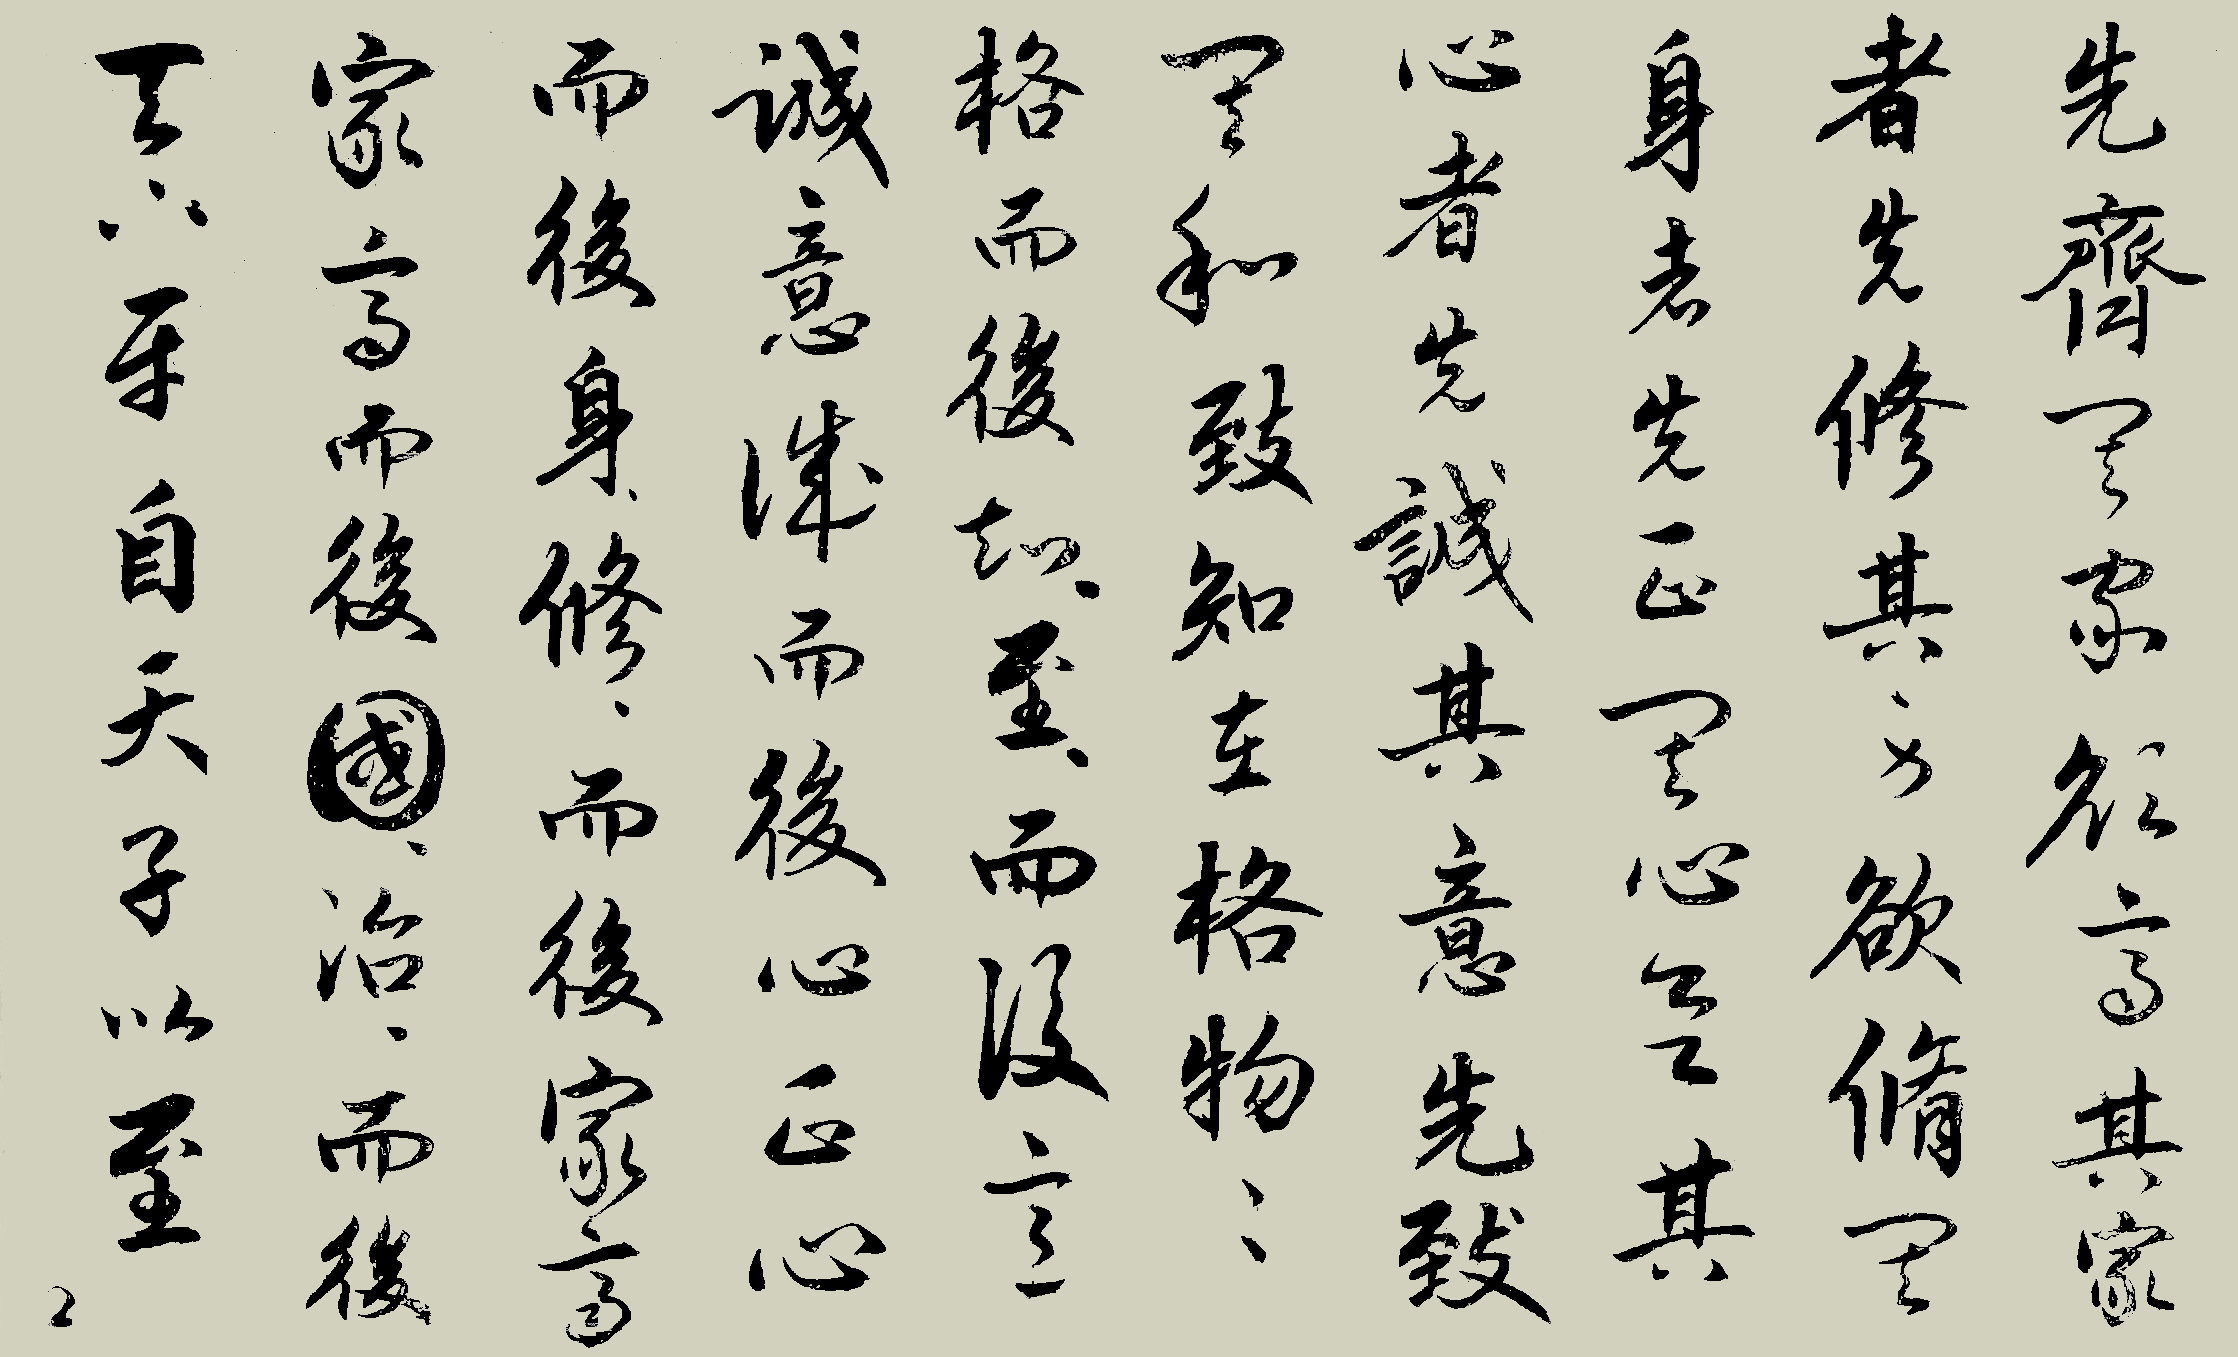 先齊其家欲齊其家
者先修其欲脩其
身者先正其心其
心者先誠其意先致
其知致知在格物〻
格而後知、至、而後意
誠意誠而後心正心
而後身、修、而後家齊
家齊而後國、治、而後
天下平自天子以至
2